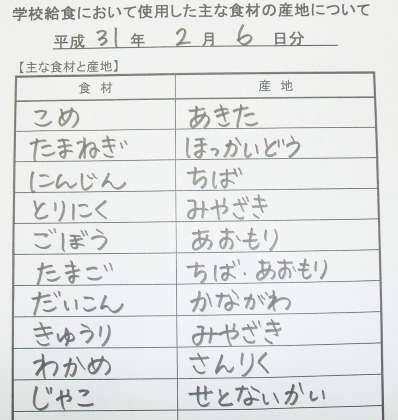 学校給食において使用した主な食材の産地について
平成 31 年 2 月 6 日分
【主な食材と産地】
食 材 産 地
こめ あきた
たまねぎ ほっかいどう
にんじん ちば
とりにく みやざき
ごぼう あおもり
たまご ちば・あおもり
だいこん かながわ
きゅうり みやざき
わかめ さんりく
じゃこ せとないかい